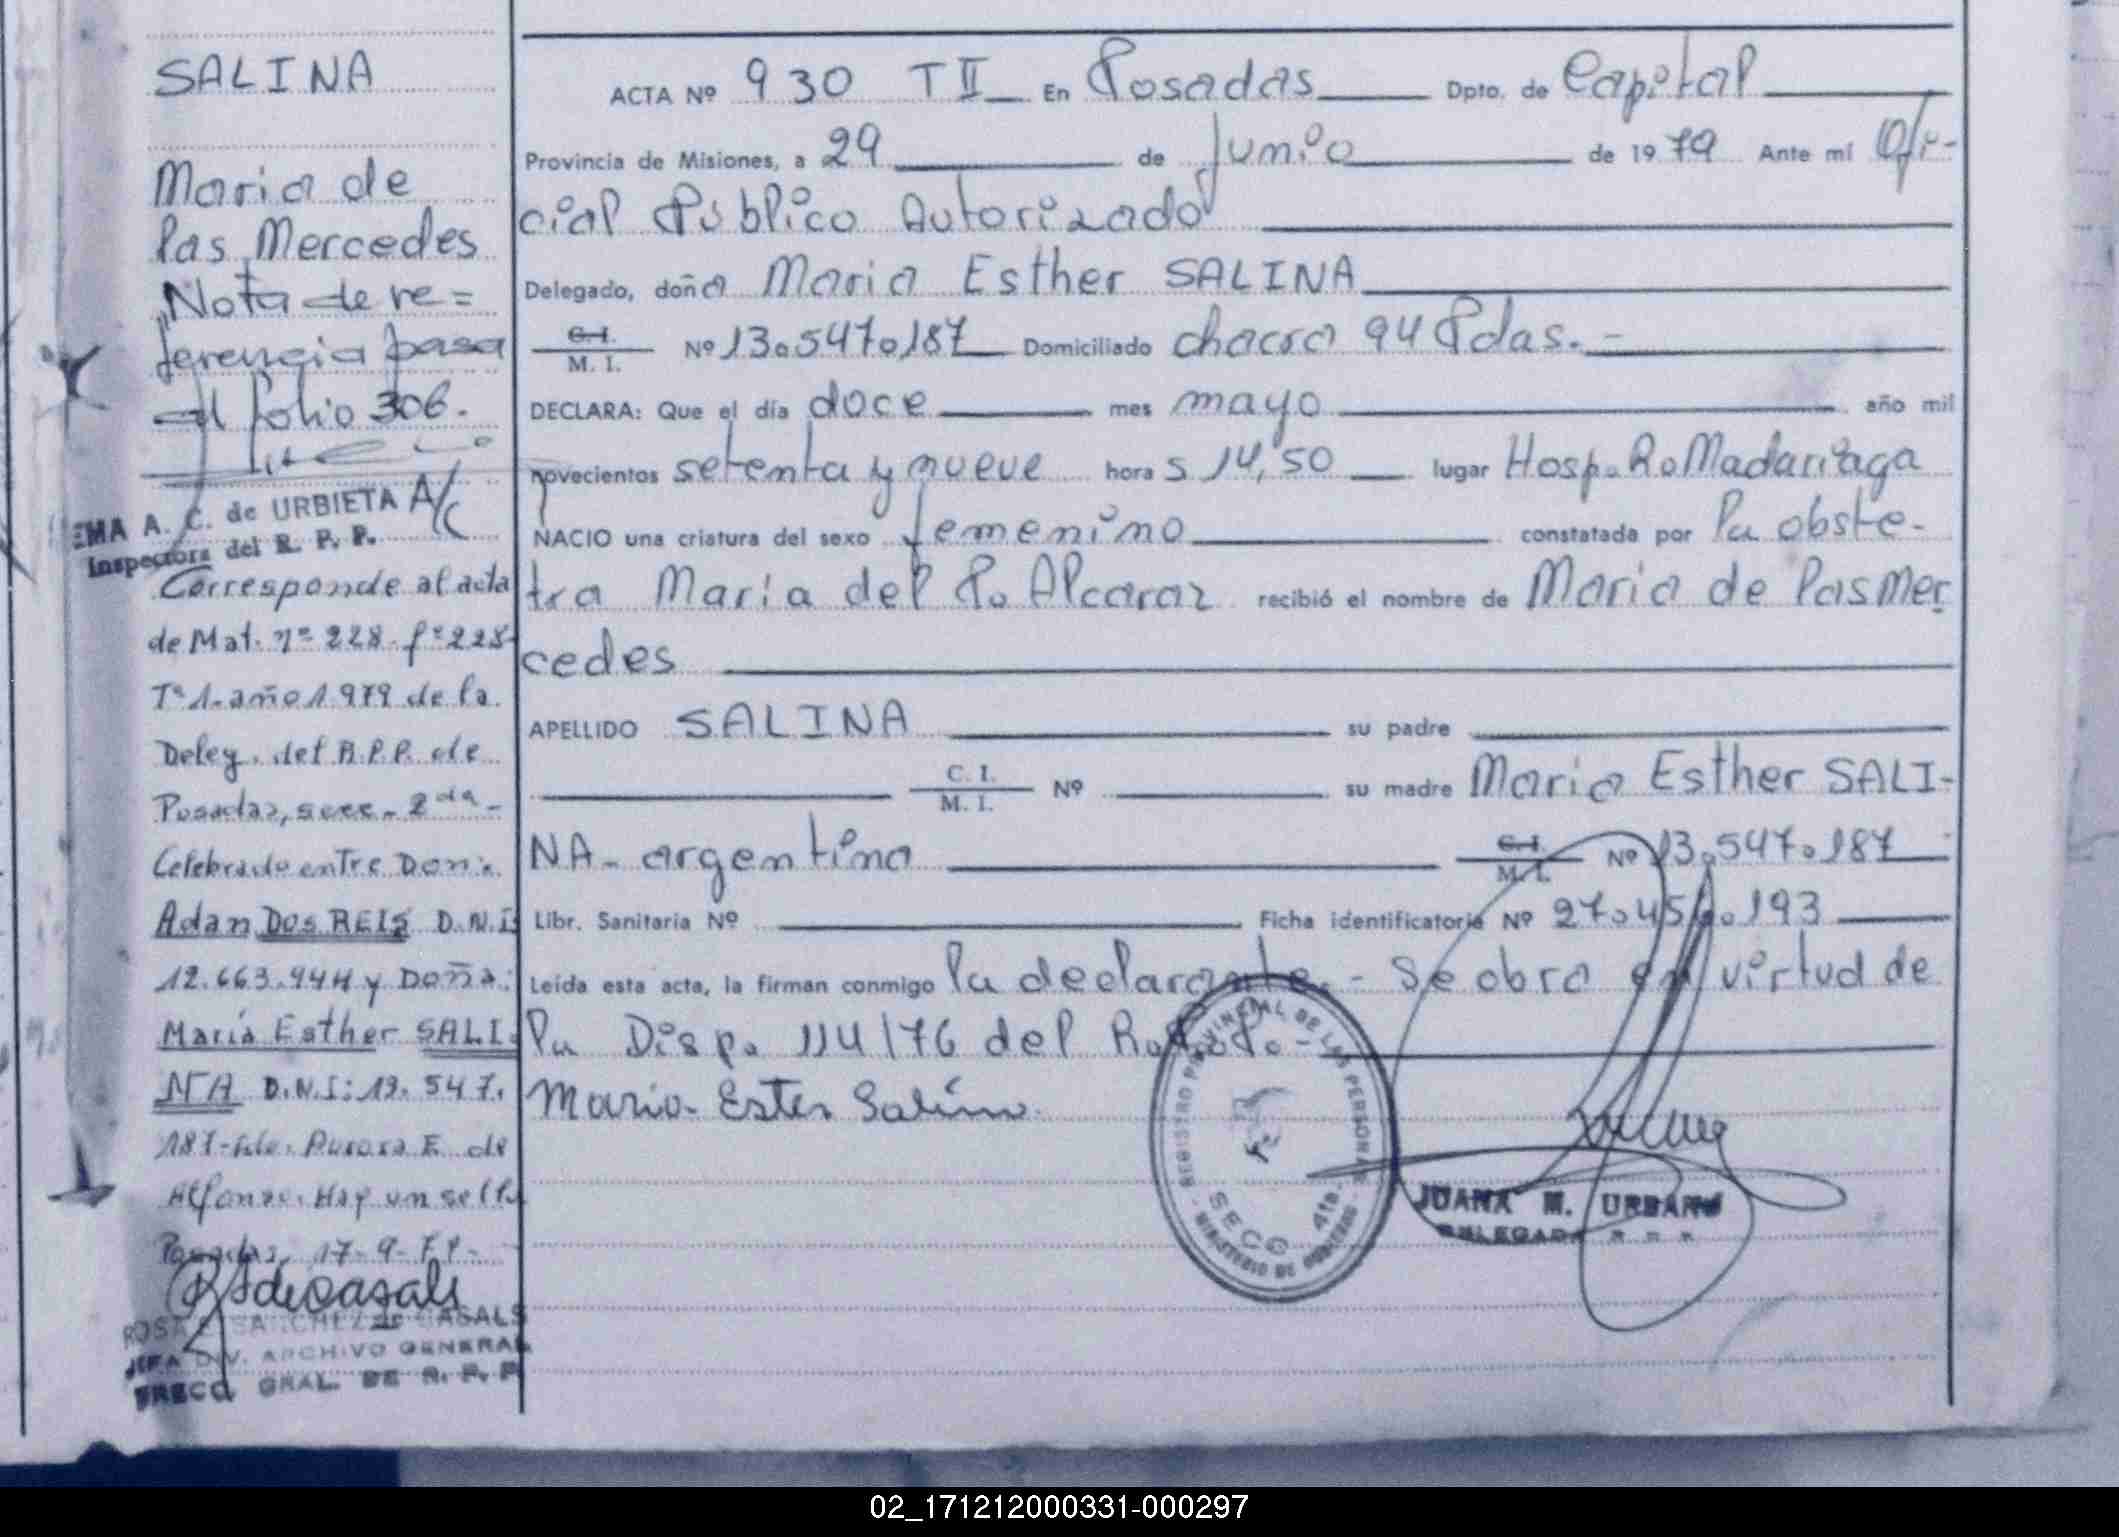 SALINA
Maria de
las Mercedes
Nota de re=
ferencia pasa
al folio 306.
EMA A. C. de URBIETA A/C
Inspectora del R. P. P.
Corresponde al acta
de Mat. nº 228 fº 228
Tº 1. año 1.979 de la
Deleg. del R.P.P. de
Posadas, secc. 2da
Celebrado entre Don:
Adan Dos REIS D.N.I
12.663.944 y Doña:
María Esther SALI-
NA D.N.I: 13.547.
187-Fdo. Aurora E. de
Alfonzo. Hay un sello
Posadas, 17-9-
ROSA SANCHEZ de CASALS
JEFA DIV. ARCHIVO GENERAL
DIRECC. GRAL. DE R. P. P.
ACTA Nº 930 TII En Posadas Dpto. de Capital
Provincia de Misiones, a 29 de Junio de 1979 Ante mi Ofi-
cial Público Autorizado
Delegado, doña Maria Esther SALINA
C.I. M. I. Nº 13.547.187 Domiciliado chacra 94 Pdas.-
DECLARA: Que el día doce mes mayo año mil
novecientos setenta y nueve hora s 14,50 lugar Hosp. R. Madariaga
NACIO una criatura del sexo femenino constatada por la obste-
tra María del P. Alcaraz recibió el nombre de Maria de las Mer
cedes
APELLIDO SALINA su padre
C. I. M. I. Nº su madre Maria Esther SALI-
NA- argentina C.I. M.I. Nº 13.547.187
Libr. Sanitaria Nº Ficha identificatoria Nº
Leída esta acta, la firman conmigo la declarante.- Se obra en virtud de
la Disp. 114/76 del R.P.P.-
Maria Ester Salina
REGISTRO PROVINCIAL DE LAS PERSONAS
MINISTERIO DE GOBIERNO
SECC 4ta.
JUANA M. URBANO
DELEGADA R. P. P.
02_171212000331-000297